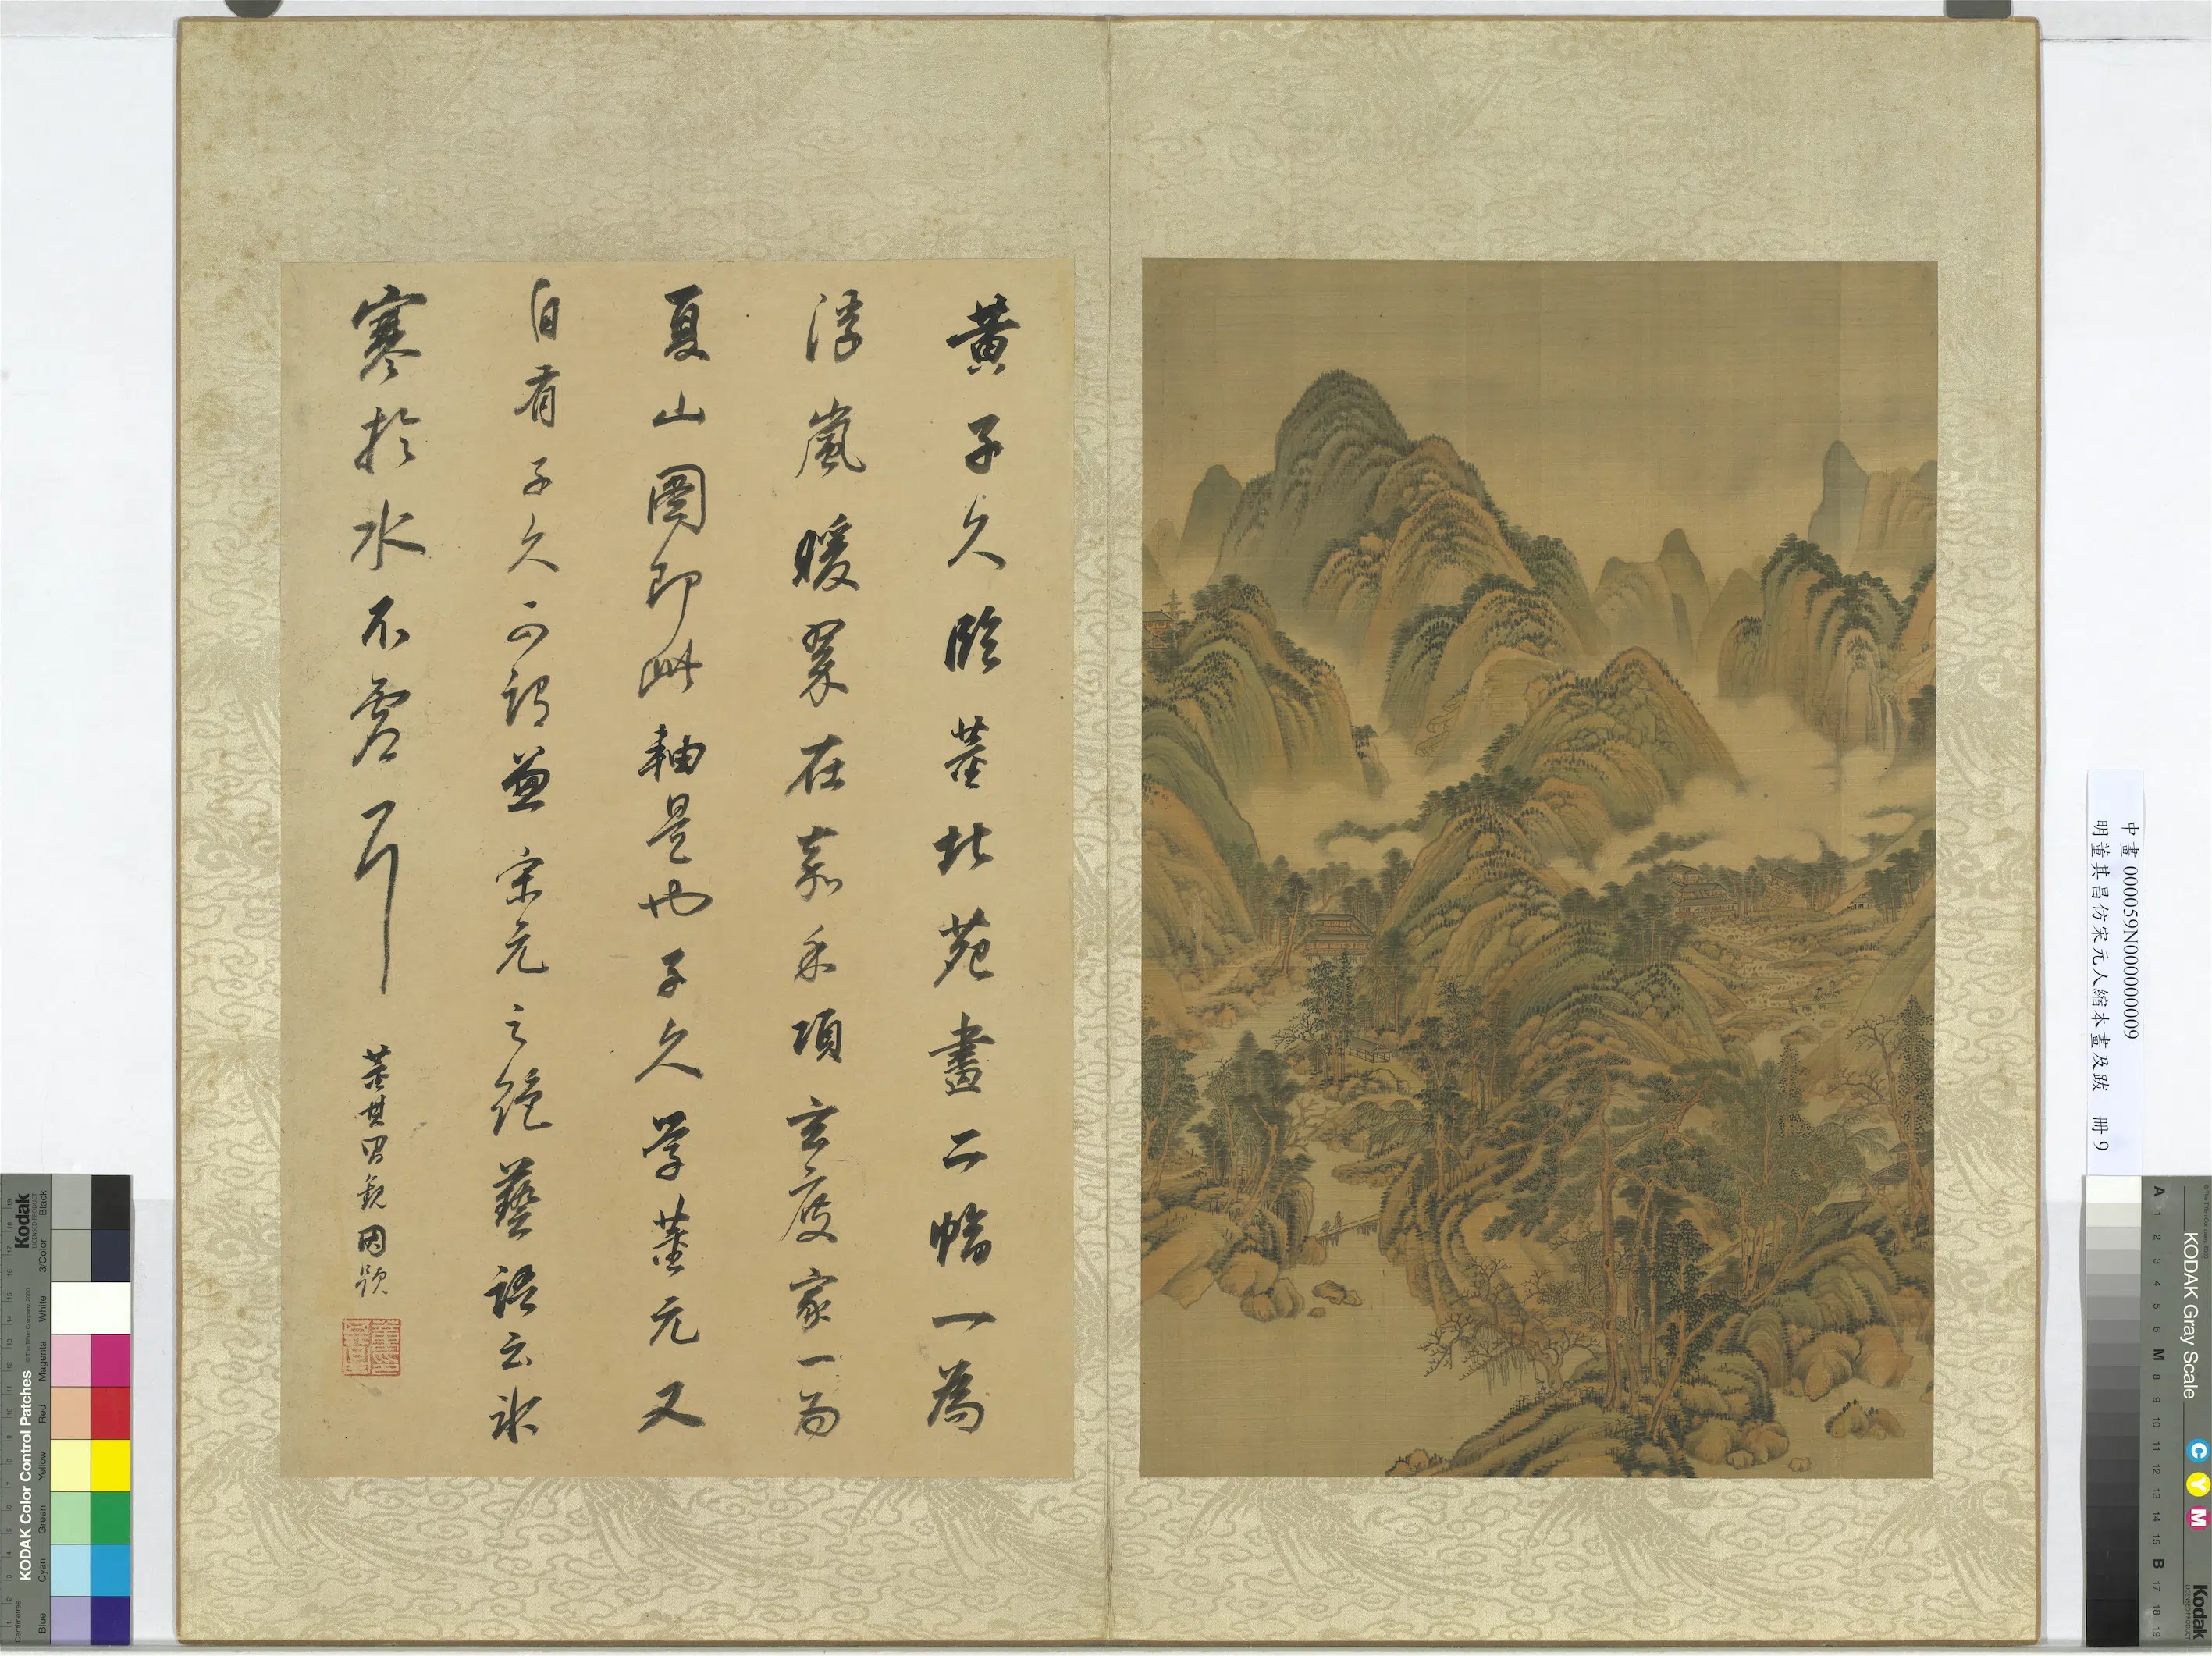 黃子久臨董北苑畫二幅一為
浮嵐暖翠在嘉禾項玄度家一為
夏山圖即此軸是也子久學董元又
自有子久可謂兼宋元之絕藝語云冰
寒於水不虛耳
董其昌觀因題
中畫 000059N000000009
明董其昌仿宋元人縮本畫及跋 冊 9
KODAK Color Control Patches
Kodak
LICENSED PRODUCT
© The Tiffen Company, 2000
Centimetres
Blue Cyan Green Yellow Red Magenta White 3/Color Black
KODAK Gray Scale
C Y M
Kodak
LICENSED PRODUCT
A 1 2 3 4 5 6 M 8 9 10 11 12 13 14 15 B 17 18 19